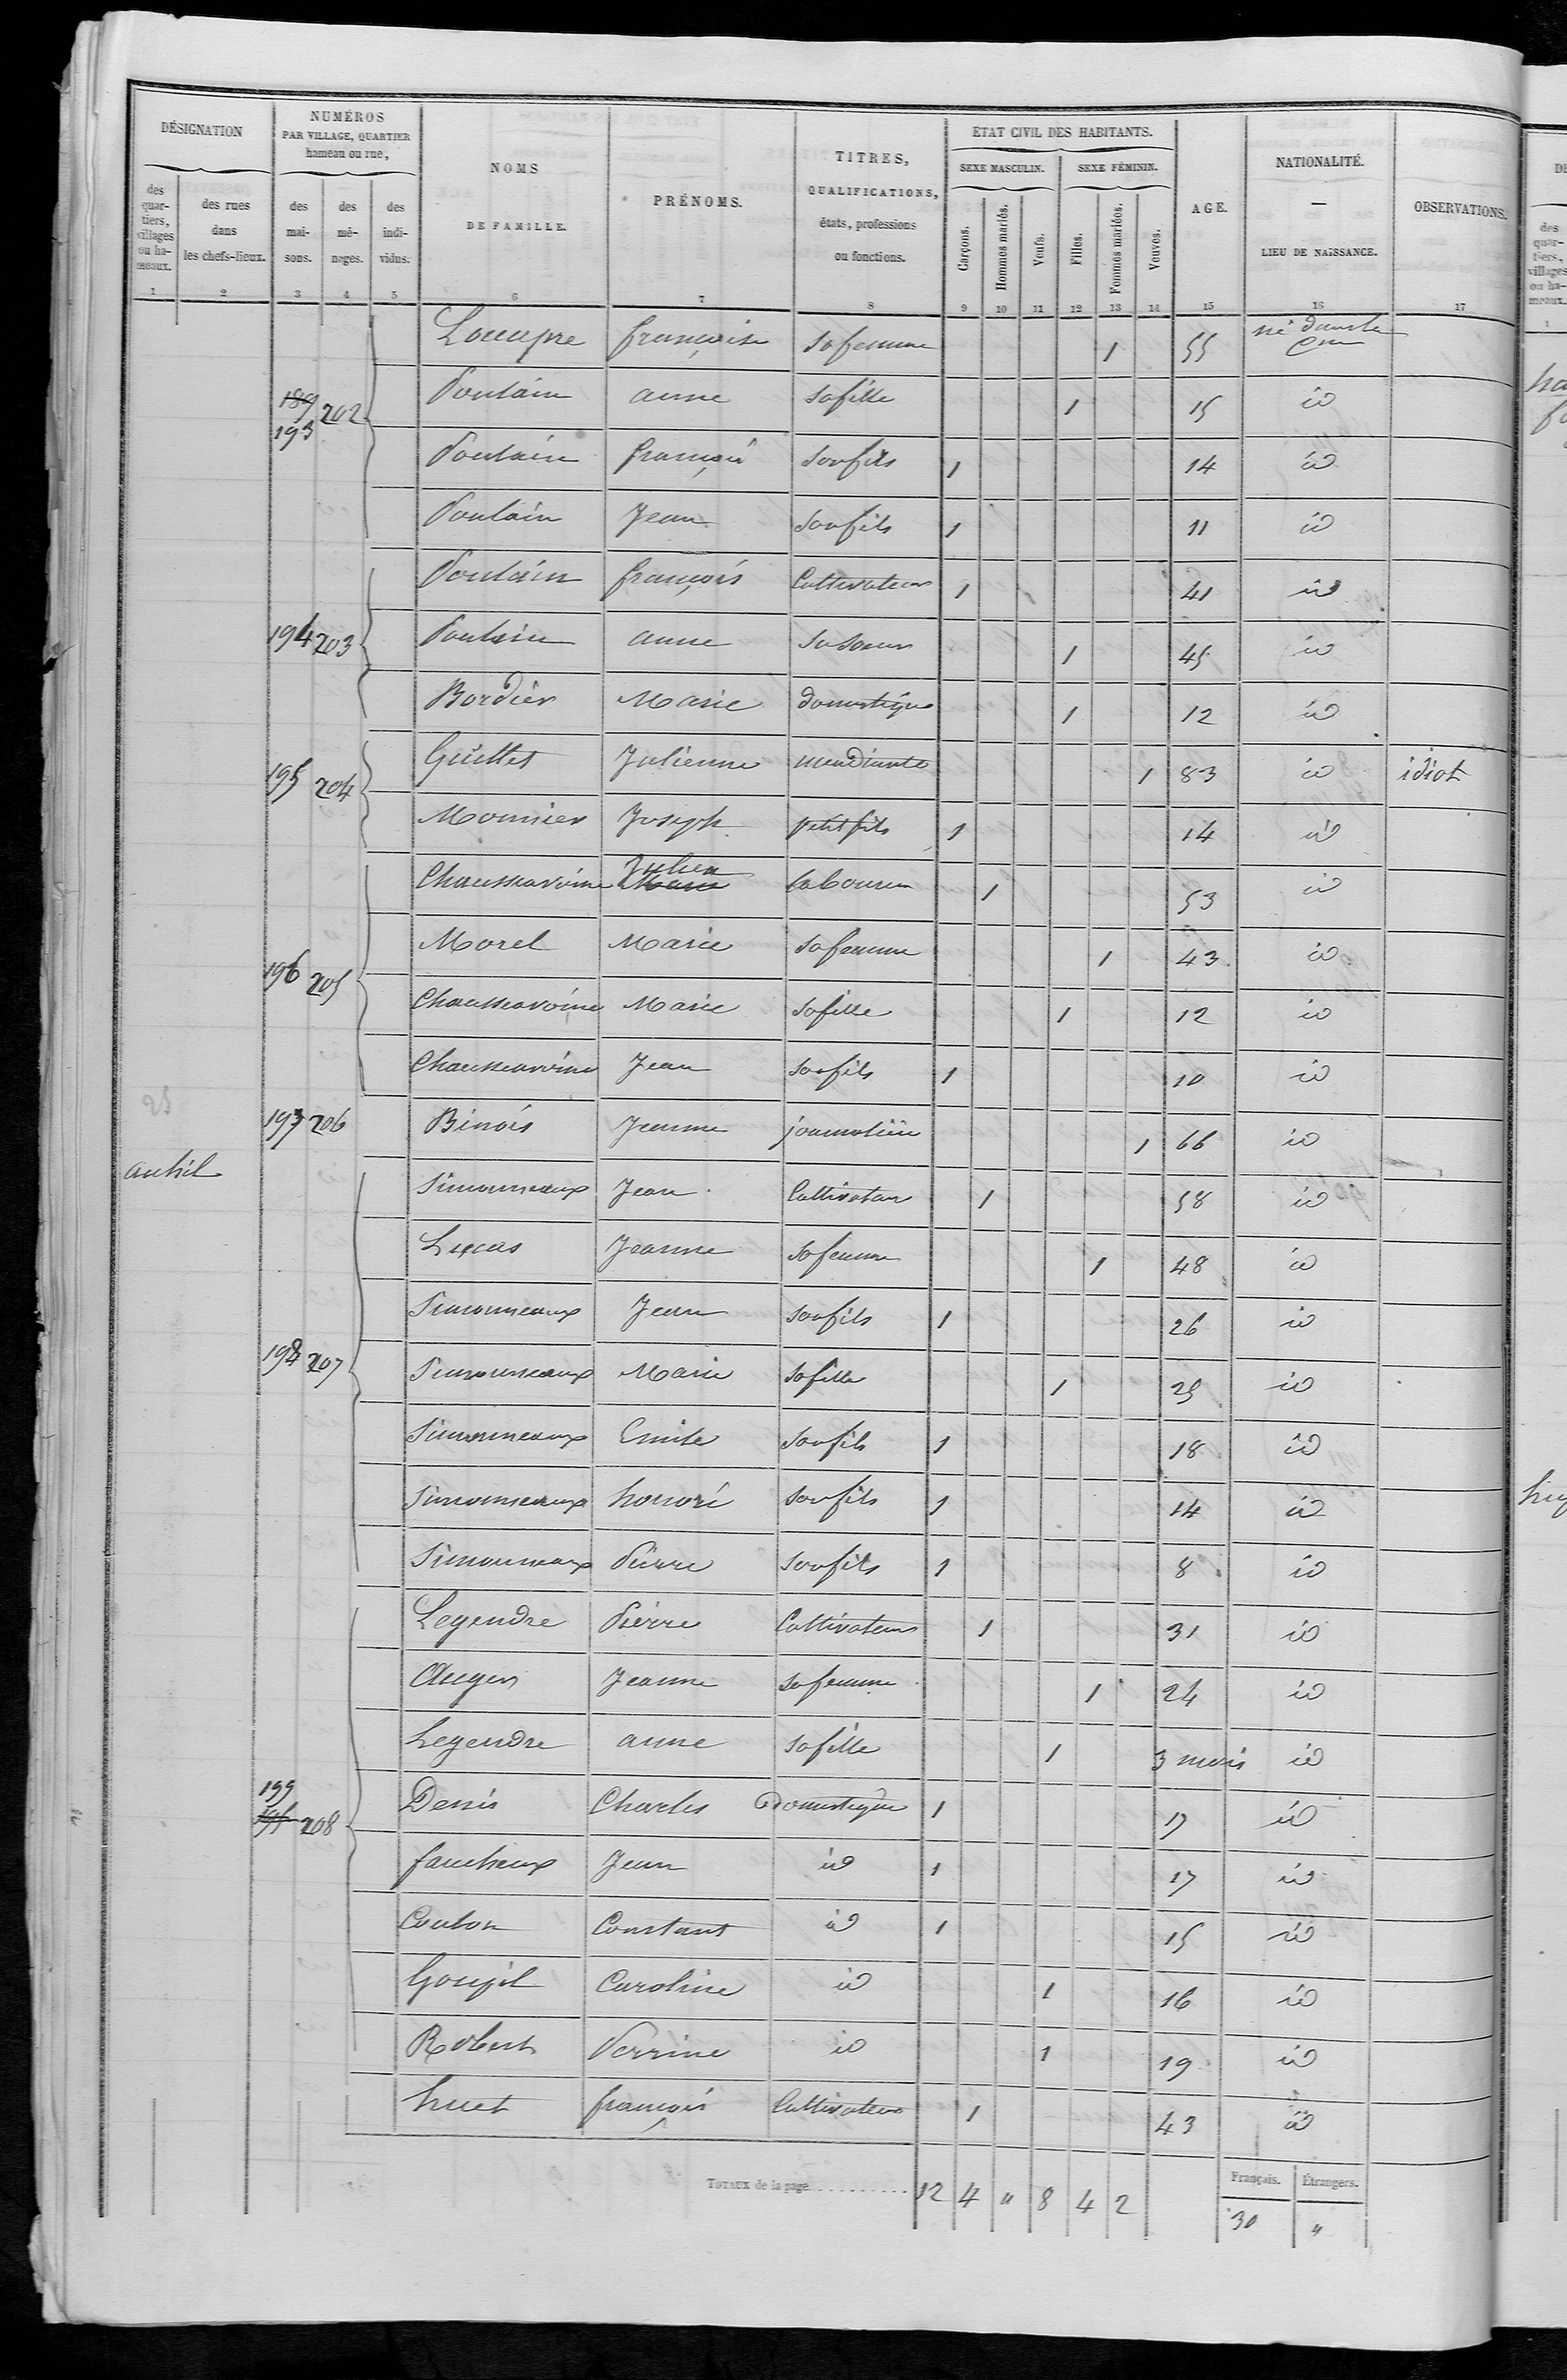 DÉSIGNATION
NUMÉROS
PAR VILLAGE, QUARTIER
hameau ou rue,
NOMS
DE FAMILLE.
PRÉNOMS.
TITRES,
QUALIFICATIONS,
états, professions
ou fonctions.
ETAT CIVIL DES HABITANTS.
SEXE MASCULIN. SEXE FÉMININ.
AGE.
NATIONALITÉ.
—
LIEU DE NAISSANCE.
OBSERVATIONS.
des quar-tiers, villages ou ha-meaux.
des rues dans les chefs-lieux.
des mai-sons.
des mé-nages.
des indi-vidus.
Garçons. Hommes mariés. Veufs. Filles. Femmes mariées. Veuves.
1 2 3 4 5 6 7 8 9 10 11 12 13 14 15 16 17
françoise sa femme 1 55 né dans la
189 193 202 Poulain anne sa fille 1 15 id
Poulain françois son fils 1 14 id
Poulain Jean son fils 1 11 id
Poulain françois Cultivateur 1 41 id
194 203 Poulain anne sa soeur 1 45 id
Bordier Marie domestique 1 12 id
195 204 Guillet Julienne mendiante 1 83 id idiot
Monnier Joseph petit fils 1 14 id
Chausseavoine Julien laboureur 1 53 id
Morel Marie sa femme 1 43 id
196 205 Chausseavoine Marie sa fille 1 12 id
Chausseavoine Jean son fils 1 10 id
197 206 Binois Jeanne journalière 1 66 id
Simonneaux Jean Cultivateur 1 58 id
Lucas Jeanne sa femme 1 48 id
Simonneaux Jean son fils 1 26 id
198 207 Simonneaux Marie sa fille 1 25 id
Simonneaux Emile son fils 1 18 id
Simonneaux honoré son fils 1 14 id
Simonneaux Pierre son fils 1 8 id
Legendre Pierre Cultivateur 1 31 id
Auger Jeanne sa femme 1 24 id
Legendre anne sa fille 1 3 mois id
199 208 Denis Charles Domestique 1 id
faucheux Jean id 1 17 id
Coulon Constant id 1 15 id
Goupil Caroline id 1 16 id
Robert Perrine id 1 19 id
huet françois Cultivateur 1 43 id
TOTAUX de la page. . . . . . . . . . 12 4 " 8 4 2
Français. Étrangers.
30 "